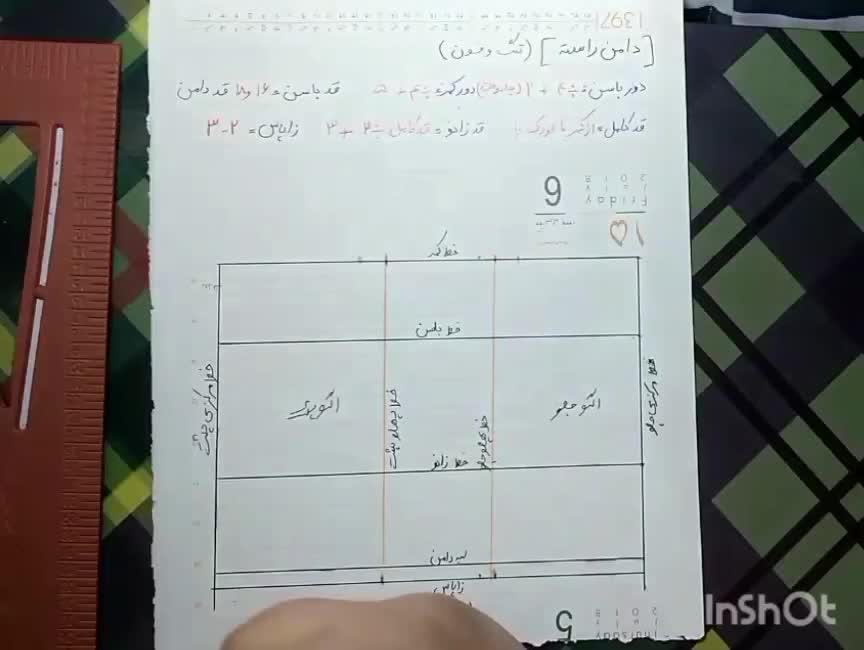 1397
[دامن راسته] (تنگ و مون)
دور باسن = ÷ ۴ + ۱ (جلو) دور کمر = ÷ ۴ + ۵ قد باسن = ۱۶ و ۱۸ قد دامن
قد کامل = از کمر تا قوزک پا قد زانو = قد کامل ÷ ۲ + ۳ زاپاس = ۲-۳
2018
Friday
6
۱۵
خط کمر
خط باسن
خط مرکزی پشت
الگو پشت
خط پهلو پشت
خط پهلو جلو
الگو جلو
خط مرکزی جلو
خط زانو
لبه دامن
زاپاس
2018
Thursday
5
InShOt